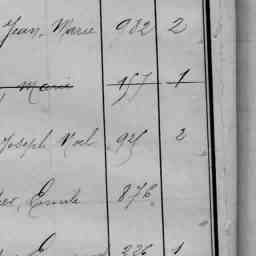 Jean Marie 982 2
Marie 157 1
Joseph Noel 925 2
Emile 876
236 1